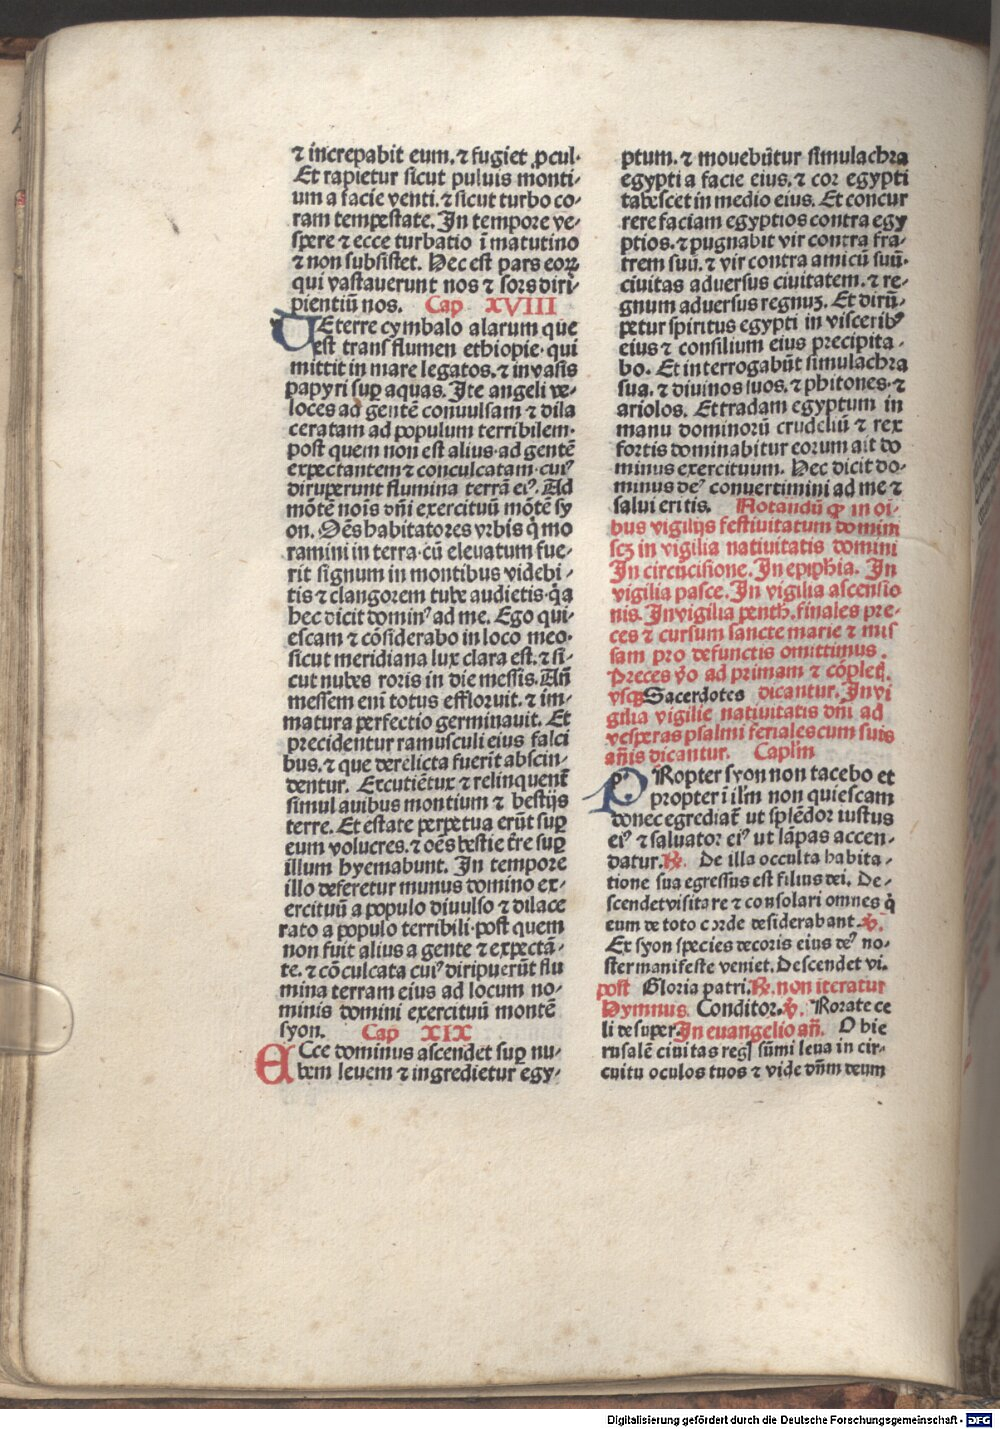 ⁊ increpabit eum. ⁊ fugiet ꝓcul.
Et rapietur sicut puluis monti⸗
um a facie venti. ⁊ sicut turbo co⸗
ram tempestate. In tempore ve⸗
spere ⁊ ecce turbatio ī matutino
⁊ non subsistet. Hec est pars eoꝝ
qui vastauerunt nos ⁊ sors diri⸗
pientiū nos. Cap XVIII
UE terre cymbalo alarum que
est trans flumen ethiopie. qui
mittit in mare legatos. ⁊ in vasis
papyri suꝑ aquas. Ite angeli ve⸗
loces ad gentē conuulsam ⁊ dila
ceratam ad populum terribilem.
post quem non est alius. ad gentē
expectantem ⁊ conculcatam. cuiꝰ
diruperunt flumina terrā eiꝰ. Ad
mōtē nois dn̄i exercituū mōtē sy
on. Oēs habitatores vrbis q̇ mo
ramini in terra. cū eleuatum fue⸗
rit signum in montibus videbi⸗
tis ⁊ clangorem tube audietis. q̇a
hec dicit dominꝰ ad me. Ego qui⸗
escam ⁊ cōsiderabo in loco meo.
sicut meridiana lux clara est. ⁊ si⸗
cut nubes roris in die messis. An̄
messem eni totus effloruit. ⁊ im⸗
matura perfectio germinauit. Et
precidentur ramusculi eius falci
bus. ⁊ que derelicta fuerīt abscin⸗
dentur. Excutiētur ⁊ relinquent̄
simul auibus montium ⁊ bestijs
terre. Et estate perpetua erūt suꝑ
eum volucres. ⁊ oēs bestie t̄re suꝑ
illum hyemabunt. In tempore
illo deferetur munus domino ex⸗
ercituū a populo diuulso ⁊ dilace
rato a populo terribili. post quem
non fuit alius a gente ⁊ expectā⸗
te. ⁊ cōculcata cuiꝰ diripuerūt flu
mina terram eius ad locum no⸗
minis domini exercituū montē
syon. Cap XIX
ECce dominus ascendet suꝑ nu⸗
bem leuem ⁊ ingredietur egy⸗
ptum. ⁊ mouebūtur simulachra
egypti a facie eius. ⁊ cor egypti
tabescet in medio eius. Et concur
rere faciam egyptios contra egy
ptios. ⁊ pugnabit vir contra fra⸗
trem suū. ⁊ vir contra amicū suū.
ciuitas aduersus ciuitatem. ⁊ re⸗
gnum aduersus regnuꝫ. Et dirū⸗
petur spiritus egypti in visceribꝰ
eius ⁊ consilium eius precipita⸗
bo. Et interrogabūt simulachra
sua. ⁊ diuinos suos. ⁊ phitones. ⁊
ariolos. Et tradam egyptum in
manu dominorū crudeliū ⁊ rex
fortis dominabitur eorum ait do
minus exercituum. Hec dicit do⸗
minus deꝰ conuertimini ad me ⁊
salui eritis. Notandū ꝙ in oi⸗
bus vigilijs festiuitatum domini
scꝫ in vigilia natiuitatis domini
In circūcisione. In epiphīa. In
vigilia pasce. In vigilia ascensio
nis. In vigilia penth. finales pre⸗
ces ⁊ cursum sancte marie ⁊ mis
sam pro defunctis omittimus.
Preces v̄o ad primam ⁊ cōpleṫ.
vsqꝫ Sacerdotes dicantur. In vi
gilia vigilie natiuitatis dn̄i ad
vesperas psalmi feriales cum suis
an̄is dicantur. Caplm̄
PRopter syon non tacebo et
propter i ilr̄m non quiescam
donec egrediat̄ ut splēdor iustus
eiꝰ ⁊ saluator eiꝰ ut lāpas accen⸗
datur. ℟. De illa occulta habita⸗
tione sua egressus est filius dei. De⸗
scendet visitare ⁊ consolari omnes q̇
eum de toto corde desiderabant. ℣.
Ex syon species decoris eius deꝰ no⸗
ster manifeste veniet. Descendet vi.
post Gloria patri. ℟. non iteratur
Hymnus. Conditor. ℣. Rorate ce
li desuper. In euangelio an̄. O hie
rusalē ciuitas reḡ sūmi leua in cir⸗
cuitu oculos tuos ⁊ vide dn̄m deum
Digitalisierung gefördert durch die Deutsche Forschungsgemeinschaft - DFG